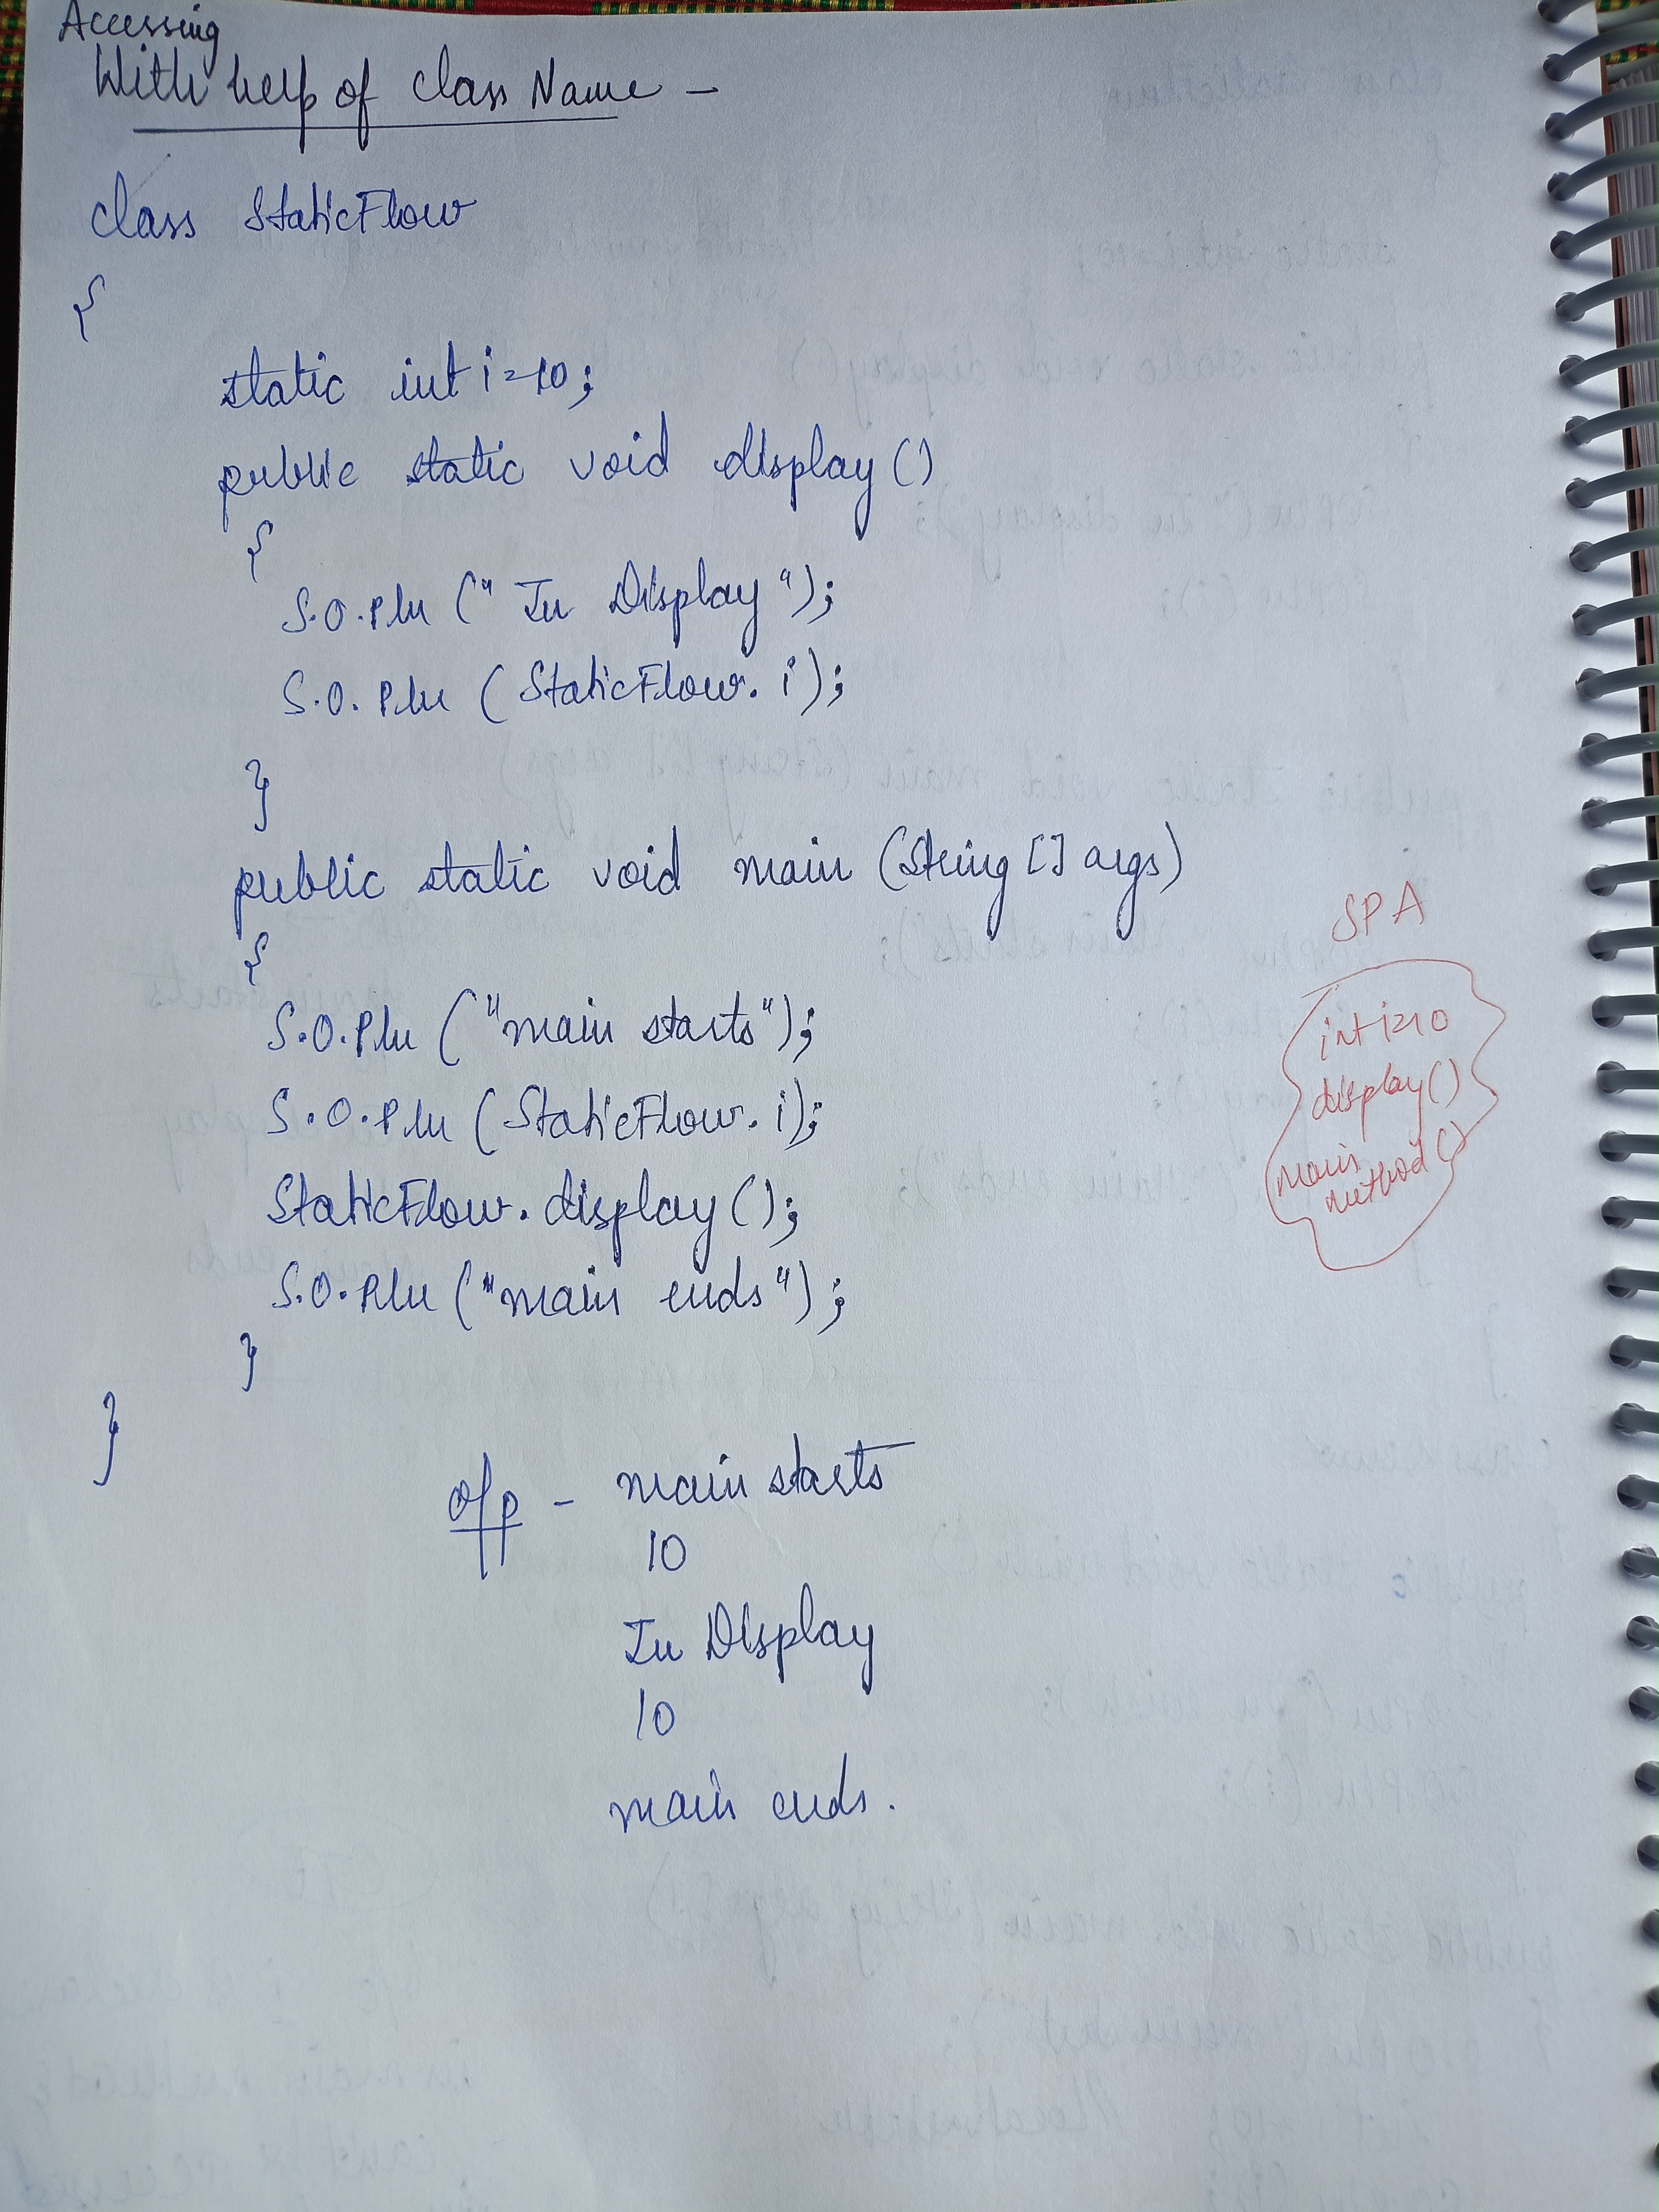 Accessing
With help of class Name -
class StaticFlow
{
static int i=10;
public static void display()
{
S.O.Pln (" In Display ");
S.O.Pln (StaticFlow. i);
}
public static void main (String [] args)
{
S.O.Pln ("main starts");
S.O.Pln (StaticFlow. i);
StaticFlow. display();
S.O.Pln ("main ends");
}
}
SPA
int i=10
display()
main
method()
o/p - main starts
10
In Display
10
main ends.